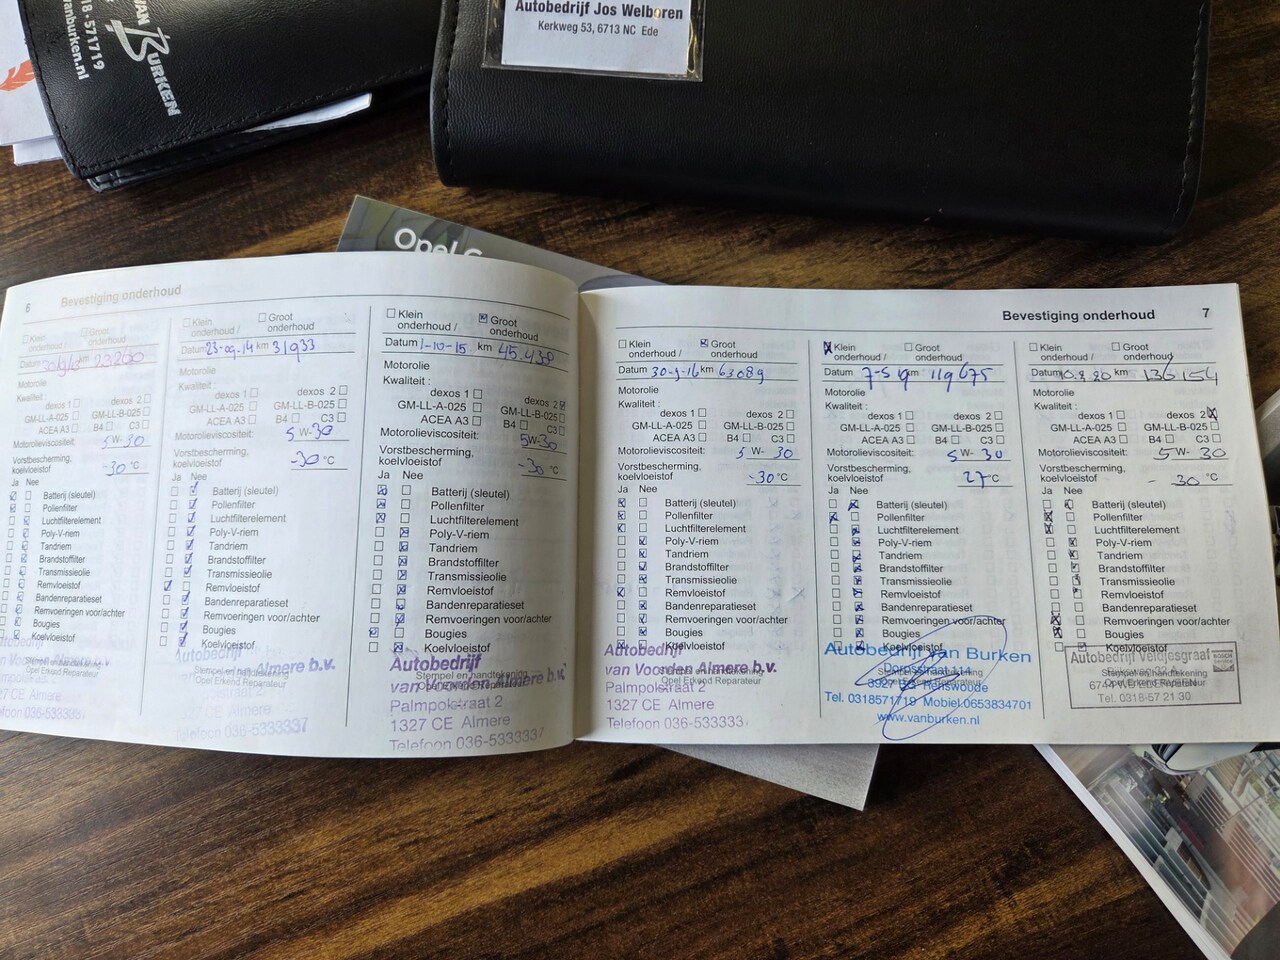 VAN
BURKEN
18 - 571719
vanburken.nl
Autobedrijf Jos Welboren
Kerkweg 53, 6713 NC Ede
Opel
6 Bevestiging onderhoud
☐ Klein onderhoud / ☐ Groot onderhoud
Datum km 23200
Motorolie
Kwaliteit :
dexos 1 ☐ dexos 2 ☐
GM-LL-A-025 ☐ GM-LL-B-025 ☐
ACEA A3 ☐ B4 ☐ C3 ☐
Motorolieviscositeit: 5 W- 30
Vorstbescherming,
koelvloeistof -30 °C
Ja Nee
☒ ☐ Batterij (sleutel)
☒ ☐ Pollenfilter
Luchtfilterelement
☐ ☒ Poly-V-riem
☐ ☒ Tandriem
☐ ☒ Brandstoffilter
☐ ☒ Transmissieolie
Remvloeistof
☐ ☒ Bandenreparatieset
☐ ☒ Remvoeringen voor/achter
☐ ☒ Bougies
☐ ☒ Koelvloeistof
Stempel en handtekening
Opel Erkend Reparateur
1327 CE Almere
☐ Klein onderhoud / ☐ Groot onderhoud
Datum 23-09-14 km 31933
Motorolie
Kwaliteit :
dexos 1 ☐ dexos 2 ☐
GM-LL-A-025 ☐ GM-LL-B-025 ☐
ACEA A3 ☐ B4 ☐ C3 ☐
Motorolieviscositeit: 5 W- 30
Vorstbescherming,
koelvloeistof -30 °C
Ja Nee
☐ ☒ Batterij (sleutel)
☐ ☒ Pollenfilter
☐ ☒ Luchtfilterelement
☐ ☒ Poly-V-riem
☐ ☒ Tandriem
☐ ☒ Brandstoffilter
☐ ☒ Transmissieolie
☒ ☐ Remvloeistof
☐ ☒ Bandenreparatieset
☐ ☒ Remvoeringen voor/achter
☐ ☒ Bougies
☐ ☒ Koelvloeistof
Autobedrijf
Stempel en handtekening
Opel Erkend Reparateur
Almere b.v.
Telefoon 036-5333337
☐ Klein onderhoud / ☒ Groot onderhoud
Datum 1-10-15 km 45.438
Motorolie
Kwaliteit :
dexos 1 ☐ dexos 2 ☒
GM-LL-A-025 ☐ GM-LL-B-025 ☐
ACEA A3 ☐ B4 ☐ C3 ☐
Motorolieviscositeit: 5W-30
Vorstbescherming,
koelvloeistof -30 °C
Ja Nee
☒ ☐ Batterij (sleutel)
☒ ☐ Pollenfilter
☒ ☐ Luchtfilterelement
☐ ☒ Poly-V-riem
☐ ☒ Tandriem
☐ ☒ Brandstoffilter
☐ ☒ Transmissieolie
☐ ☒ Remvloeistof
☐ ☒ Bandenreparatieset
☐ ☒ Remvoeringen voor/achter
☒ ☐ Bougies
☐ ☒ Koelvloeistof
Autobedrijf
Stempel en handtekening
van Voorden Almere b.v.
Opel Erkend Reparateur
Palmpolstraat 2
1327 CE Almere
Telefoon 036-5333337
Bevestiging onderhoud 7
☐ Klein onderhoud / ☒ Groot onderhoud
Datum 30-9-16 km 63089
Motorolie
Kwaliteit :
dexos 1 ☐ dexos 2 ☐
GM-LL-A-025 ☐ GM-LL-B-025 ☐
ACEA A3 ☐ B4 ☐ C3 ☐
Motorolieviscositeit: 5 W- 30
Vorstbescherming,
koelvloeistof -30 °C
Ja Nee
☒ ☐ Batterij (sleutel)
☒ ☐ Pollenfilter
☒ ☐ Luchtfilterelement
☐ ☒ Poly-V-riem
☐ ☒ Tandriem
☐ ☒ Brandstoffilter
☐ ☒ Transmissieolie
☒ ☐ Remvloeistof
☐ ☒ Bandenreparatieset
☐ ☒ Remvoeringen voor/achter
☐ ☒ Bougies
Koelvloeistof
Autobedrijf
van Voorden Almere b.v.
Stempel en handtekening
Opel Erkend Reparateur
Palmpolstraat 2
1327 CE Almere
Telefoon 036-533333
☒ Klein onderhoud / ☐ Groot onderhoud
Datum 7-5 19 km 119675
Motorolie
Kwaliteit :
dexos 1 ☐ dexos 2 ☐
GM-LL-A-025 ☐ GM-LL-B-025 ☐
ACEA A3 ☐ B4 ☐ C3 ☐
Motorolieviscositeit: 5 W- 30
Vorstbescherming,
koelvloeistof 27 °C
Ja Nee
☐ ☒ Batterij (sleutel)
☒ ☐ Pollenfilter
☐ ☒ Luchtfilterelement
☐ ☒ Poly-V-riem
☐ ☒ Tandriem
☐ ☒ Brandstoffilter
☐ ☒ Transmissieolie
☐ ☒ Remvloeistof
☐ ☒ Bandenreparatieset
☐ ☒ Remvoeringen voor/achter
☐ ☒ Bougies
☐ ☒ Koelvloeistof
Autobedrijf van Burken
Dorpsstraat 114
Stempel en handtekening
Opel Erkend Reparateur
3927 Renswoude
Tel. 0318571719 Mobiel 0653834701
www.vanburken.nl
☐ Klein onderhoud / ☐ Groot onderhoud
Datum 10.8.20 km 136154
Motorolie
Kwaliteit :
dexos 1 ☐ dexos 2 ☒
GM-LL-A-025 ☐ GM-LL-B-025 ☐
ACEA A3 ☐ B4 ☐ C3 ☐
Motorolieviscositeit: 5 W- 30
Vorstbescherming,
koelvloeistof - 30 °C
Ja Nee
☐ ☒ Batterij (sleutel)
☒ ☐ Pollenfilter
☒ ☐ Luchtfilterelement
☐ ☒ Poly-V-riem
☐ ☒ Tandriem
☐ ☒ Brandstoffilter
☐ ☒ Transmissieolie
☐ ☒ Remvloeistof
☐ ☐ Bandenreparatieset
☒ ☐ Remvoeringen voor/achter
☒ ☐ Bougies
☐ ☐ Koelvloeistof
Autobedrijf Veldjesgraaf
BOSCH
Service
Stempel en handtekening
Opel Erkend Reparateur
Tel. 0318-57 21 30